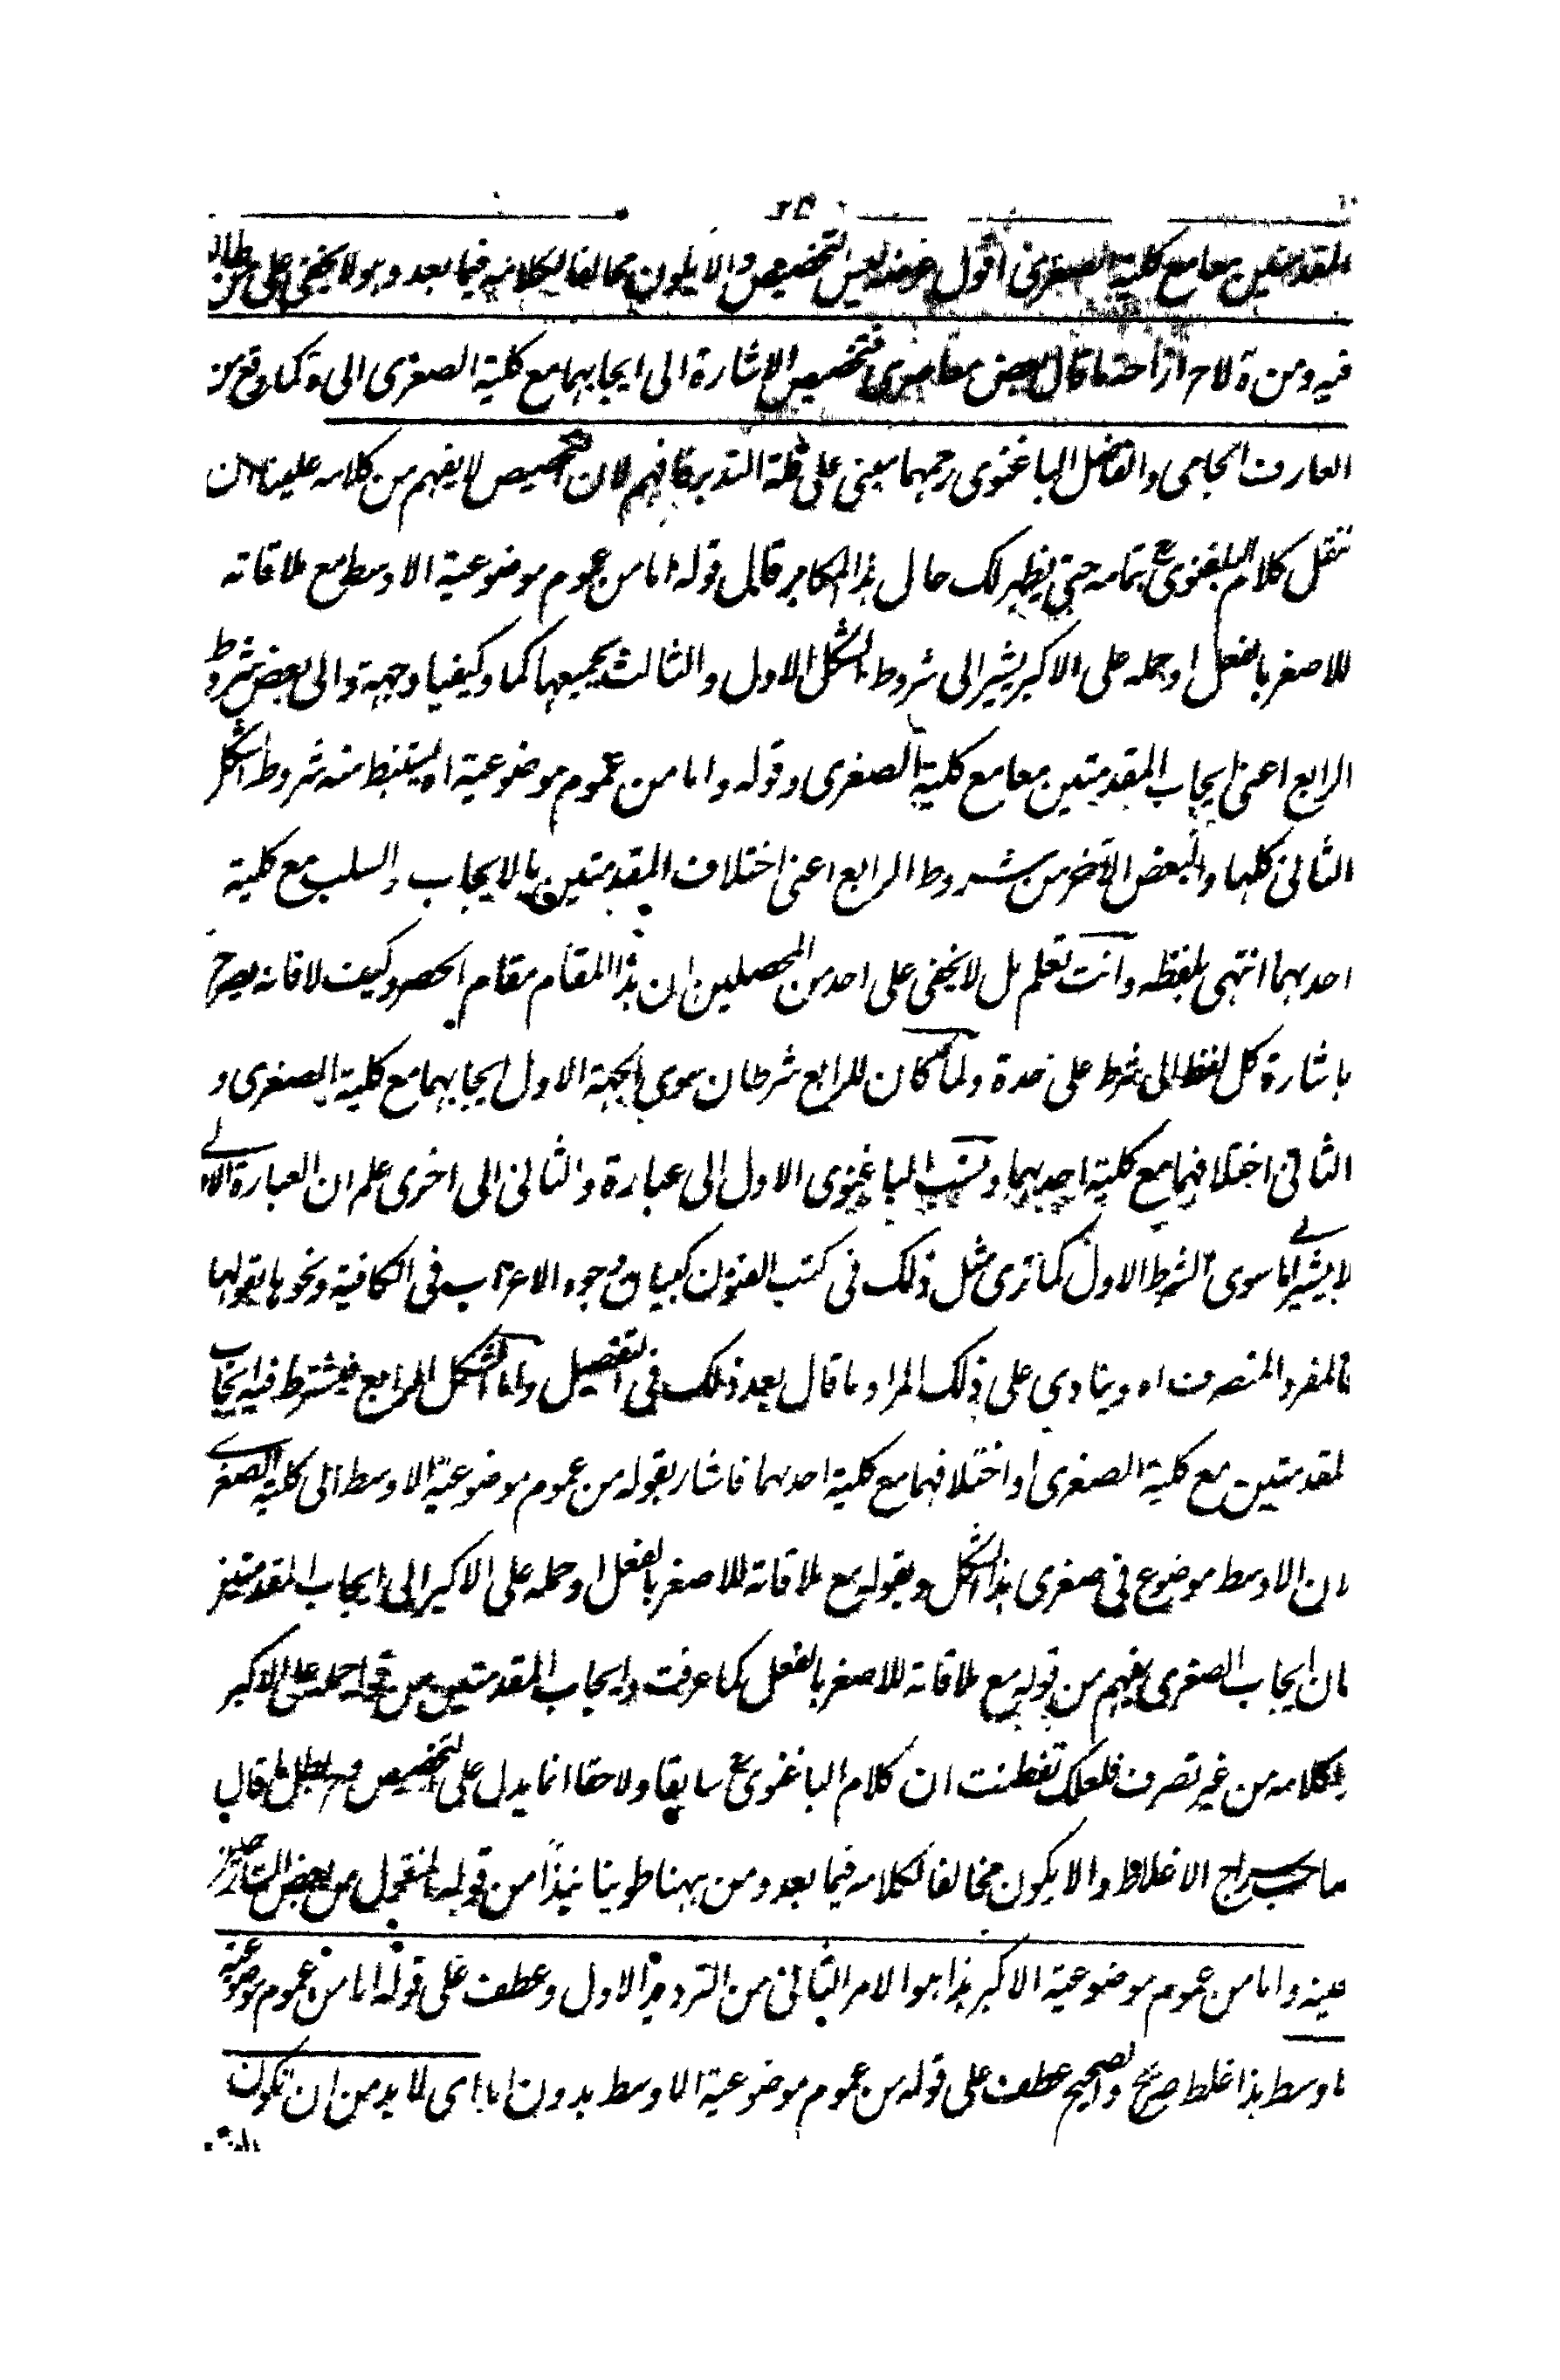 المقدمتين معا مع كلية الصغرى اقول غرضه ليس التخصيص والا يكون مخالفا لكلامه فيما بعد وهو لا يخفى على من طالع
فيه ومن ة لاح ازاحة ما قال بعض معاصرى فتخصيص الاشارة الى ايجابهما مع كلية الصغرى الى ة كما وقع من
العارف الجامى والفاضل الباغنوى رحمهما مبنى على قلة التدبر فافهم لان التخصيص لا يفهم من كلامه علينا ان
ننقل كلام الباغنوى بتمامه حتى يظهر لك حال هذا المكابر قال قوله اما من عموم موضوعية الاوسط مع ملاقاته
للاصغر بالفعل او حمله على الاكبر يشير الى شروط الشكل الاول والثالث بجميعها كما وكيفيا وجهة والى بعض شروط
الرابع اعنى ايجاب المقدمتين معا مع كلية الصغرى وقوله واما من عموم موضوعية اه يستنبط منه شروط الشكل
الثانى كلها والبعض الآخر من شروط الرابع اعنى اختلاف المقدمتين بالايجاب والسلب مع كلية
احدهما انتهى بلفظه وانت تعلم بل لا يخفى على احد من المحصلين ان هذا المقام مقام الحصر وكيف لا فانه يصرح
باشارة كل لفظ الى شرط على حدة ولما كان للرابع شرطان سوى الجهة الاول ايجابهما مع كلية الصغرى و
الثانى اختلافهما مع كلية احدهما ونسب الباغنوى الاول الى عبارة والثانى الى اخرى علم ان العبارة الاولى
لا يشير الى ما سوى الشرط الاول كما ترى مثل ذلك فى كتب الفنون كبيان وجوه الاعراب فى الكافية ونحوها بقولها
فالمفرد المنصرف اه وينادى على ذلك المراد ما قال بعد ذلك فى التفصيل واما الشكل الرابع فيشترط فيه ايجاب
المقدمتين مع كلية الصغرى او اختلافهما مع كلية احدهما فاشار بقوله من عموم موضوعية الاوسط الى كلية الصغرى
لان الاوسط موضوع فى صغرى هذا الشكل وبقوله مع ملاقاته للاصغر بالفعل او حمله على الاكبر الى ايجاب المقدمتين
فان ايجاب الصغرى يفهم من قوله مع ملاقاته للاصغر بالفعل كما عرفت وايجاب المقدمتين من قوله حمله على الاكبر
بكلامه من غير تصرف فلعلك تفطنت ان كلام الباغنوى سابقا ولاحقا انما يدل على التخصيص وح بطل ما قال
صاحب سراج الاغلاط والا يكون مخالفا لكلامه فيما بعد ومن ههنا طوينا نبذا من قوله المنقول من بعض الشارحين
عينه واما من عموم موضوعية الاكبر هذا هو الامر الثانى من الترديد الاول وعطف على قوله اما من عموم موضوعية
الاوسط هذا غلط صريح والصحيح عطف على قوله من عموم موضوعية الاوسط بدون اما اى لا بد من ان تكون